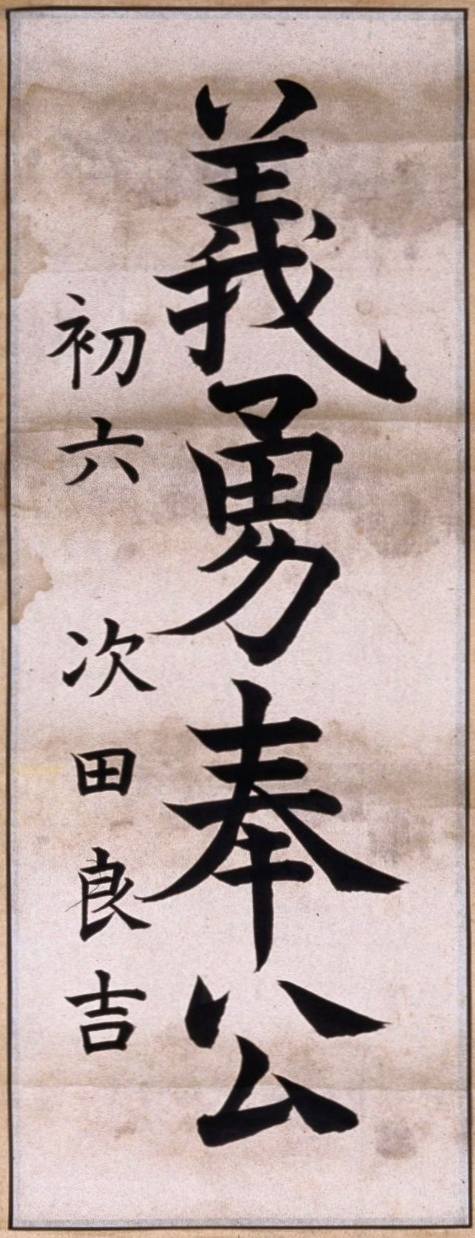 義勇奉公
初六 次田良吉